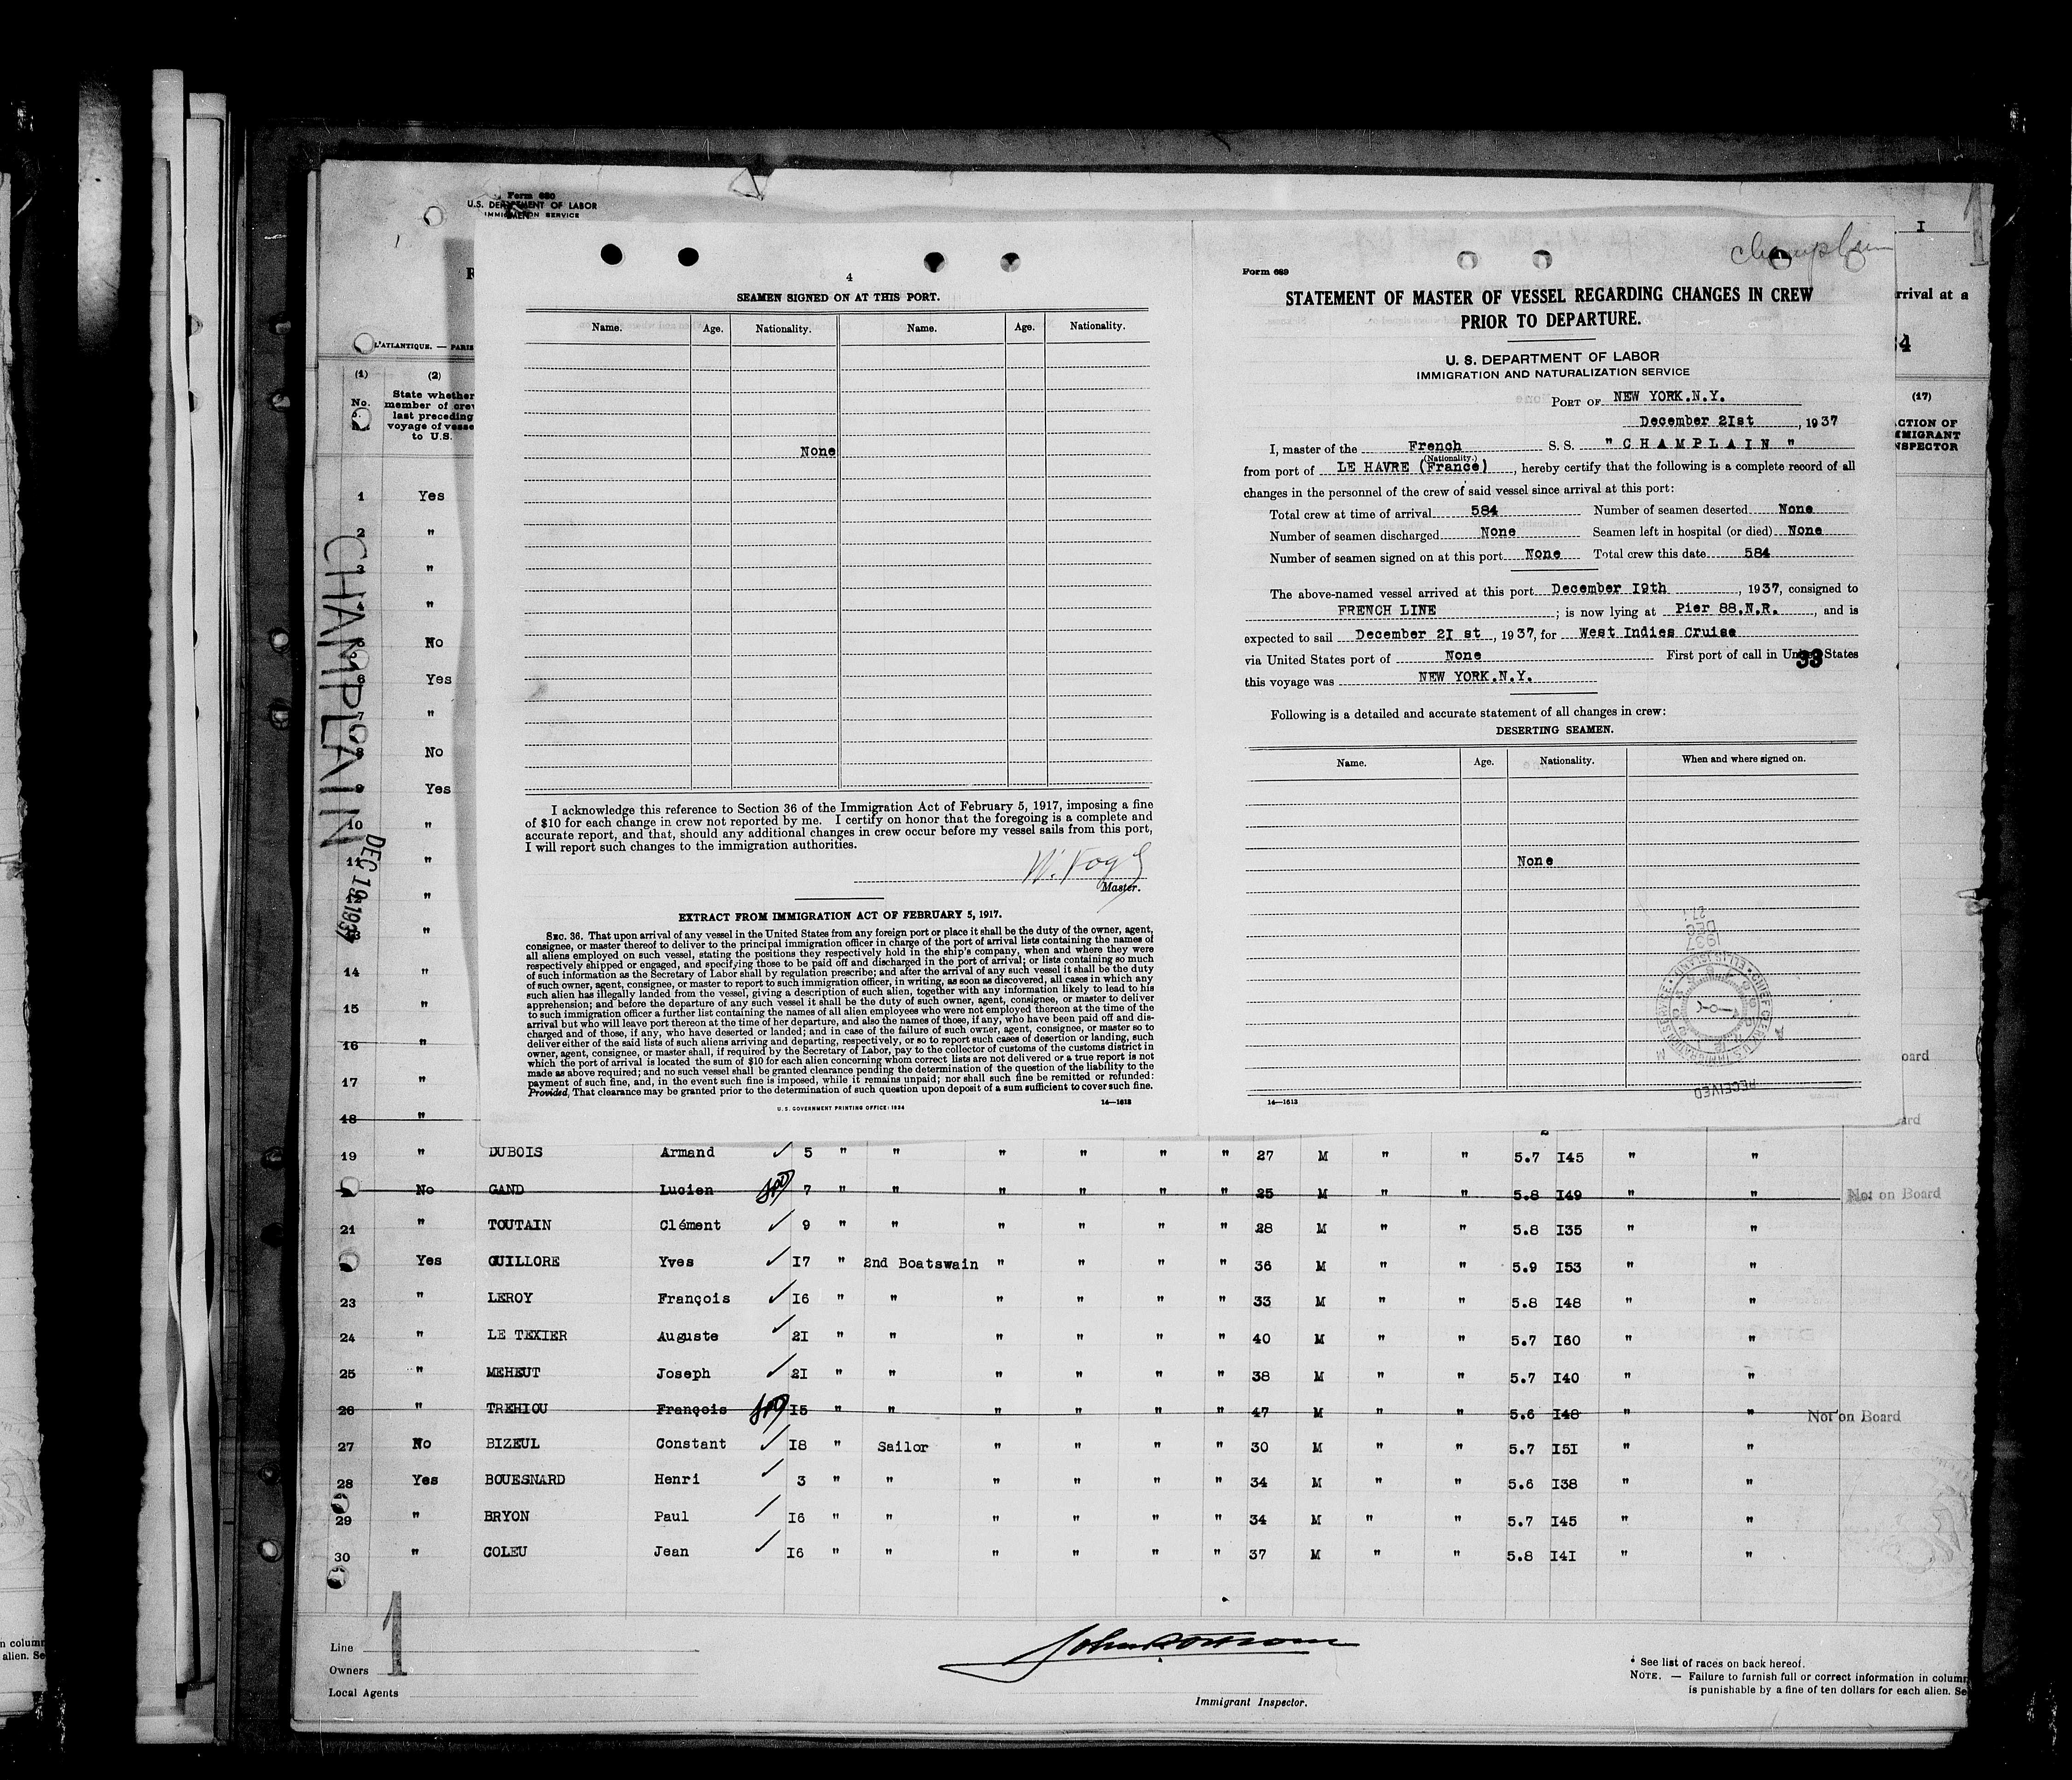 Form 680
U.S. DEPARTMENT OF LABOR
IMMIGRATION SERVICE
L'ATLANTIQUE. — PARIS
(1)
No.
(2)
State whether
member of crew
last preceding
voyage of vessel
to U.S.
1 Yes
2 "
3 "
"
5 No
6 Yes
7 "
8 No
9 Yes
10 "
11 "
"
13 "
14 "
15 "
16 "
17 "
18 "
CHAMPLAIN
DEC 19 1937
4
SEAMEN SIGNED ON AT THIS PORT.
Name. Age. Nationality. Name. Age. Nationality.
None
I acknowledge this reference to Section 36 of the Immigration Act of February 5, 1917, imposing a fine
of $10 for each change in crew not reported by me. I certify on honor that the foregoing is a complete and
accurate report, and that, should any additional changes in crew occur before my vessel sails from this port,
I will report such changes to the immigration authorities.
Master.
EXTRACT FROM IMMIGRATION ACT OF FEBRUARY 5, 1917.
SEC. 36. That upon arrival of any vessel in the United States from any foreign port or place it shall be the duty of the owner, agent,
consignee, or master thereof to deliver to the principal immigration officer in charge of the port of arrival lists containing the names of
all aliens employed on such vessel, stating the positions they respectively hold in the ship's company, when and where they were
respectively shipped or engaged, and specifying those to be paid off and discharged in the port of arrival; or lists containing so much
of such information as the Secretary of Labor shall by regulation prescribe; and after the arrival of any such vessel it shall be the duty
of such owner, agent, consignee, or master to report to such immigration officer, in writing, as soon as discovered, all cases in which any
such alien has illegally landed from the vessel, giving a description of such alien, together with any information likely to lead to his
apprehension; and before the departure of any such vessel it shall be the duty of such owner, agent, consignee, or master to deliver
to such immigration officer a further list containing the names of all alien employees who were not employed thereon at the time of the
arrival but who will leave port thereon at the time of her departure, and also the names of those, if any, who have been paid off and dis-
charged and of those, if any, who have deserted or landed; and in case of the failure of such owner, agent, consignee, or master so to
deliver either of the said lists of such aliens arriving and departing, respectively, or so to report such cases of desertion or landing, such
owner, agent, consignee, or master shall, if required by the Secretary of Labor, pay to the collector of customs of the customs district in
which the port of arrival is located the sum of $10 for each alien concerning whom correct lists are not delivered or a true report is not
made as above required; and no such vessel shall be granted clearance pending the determination of the question of the liability to the
payment of such fine, and, in the event such fine is imposed, while it remains unpaid; nor shall such fine be remitted or refunded:
Provided, That clearance may be granted prior to the determination of such question upon deposit of a sum sufficient to cover such fine.
U.S. GOVERNMENT PRINTING OFFICE: 1934
14—1613
Champlain
Form 689
STATEMENT OF MASTER OF VESSEL REGARDING CHANGES IN CREW
PRIOR TO DEPARTURE.
U. S. DEPARTMENT OF LABOR
IMMIGRATION AND NATURALIZATION SERVICE
PORT OF NEW YORK.N.Y.
December 2Ist, 1937
I, master of the French S. S. " C H A M P L A I N "
(Nationality.)
from port of LE HAVRE (France), hereby certify that the following is a complete record of all
changes in the personnel of the crew of said vessel since arrival at this port:
Total crew at time of arrival 584 Number of seamen deserted None
Number of seamen discharged None Seamen left in hospital (or died) None
Number of seamen signed on at this port None Total crew this date 584
The above-named vessel arrived at this port December I9th, 1937, consigned to
FRENCH LINE; is now lying at Pier 88.N.R., and is
expected to sail December 2I st, 1937, for West Indies Cruise
via United States port of None First port of call in United States
33
this voyage was NEW YORK.N.Y.
Following is a detailed and accurate statement of all changes in crew:
DESERTING SEAMEN.
Name. Age. Nationality. When and where signed on.
None
1937
DEC
27
RECEIVED
14—1613
I
rrival at a
34
(17)
CTION OF
MMIGRANT
NSPECTOR
oard
ard
19 " DUBOIS Armand 5 " " " " " " 27 M " " 5.7 I45 " "
No GAND Lucien 7 " " " " " " 25 M " " 5.8 I49 " " Not on Board
21 " TOUTAIN Clément 9 " " " " " " 28 M " " 5.8 I35 " "
Yes GUILLORE Yves I7 " 2nd Boatswain " " " " 36 M " " 5.9 I53 " "
23 " LEROY François I6 " " " " " " 33 M " " 5.8 I48 " "
24 " LE TEXIER Auguste 2I " " " " " " 40 M " " 5.7 I60 " "
25 " MEHEUT Joseph 2I " " " " " " 38 M " " 5.7 I40 " "
26 " TREHIOU François I5 " " " " " " 47 M " " 5.6 I48 " " Not on Board
27 No BIZEUL Constant I8 " Sailor " " " " 30 M " " 5.7 I5I " "
28 Yes BOUESNARD Henri 3 " " " " " " 34 M " " 5.6 I38 " "
29 " BRYON Paul I6 " " " " " " 34 M " " 5.7 I45 " "
30 " COLEU Jean I6 " " " " " " 37 M " " 5.8 I4I " "
1
Line
Owners
Local Agents
Immigrant Inspector.
* See list of races on back hereof.
NOTE. — Failure to furnish full or correct information in column
is punishable by a fine of ten dollars for each alien. Se
n column
alien. Se